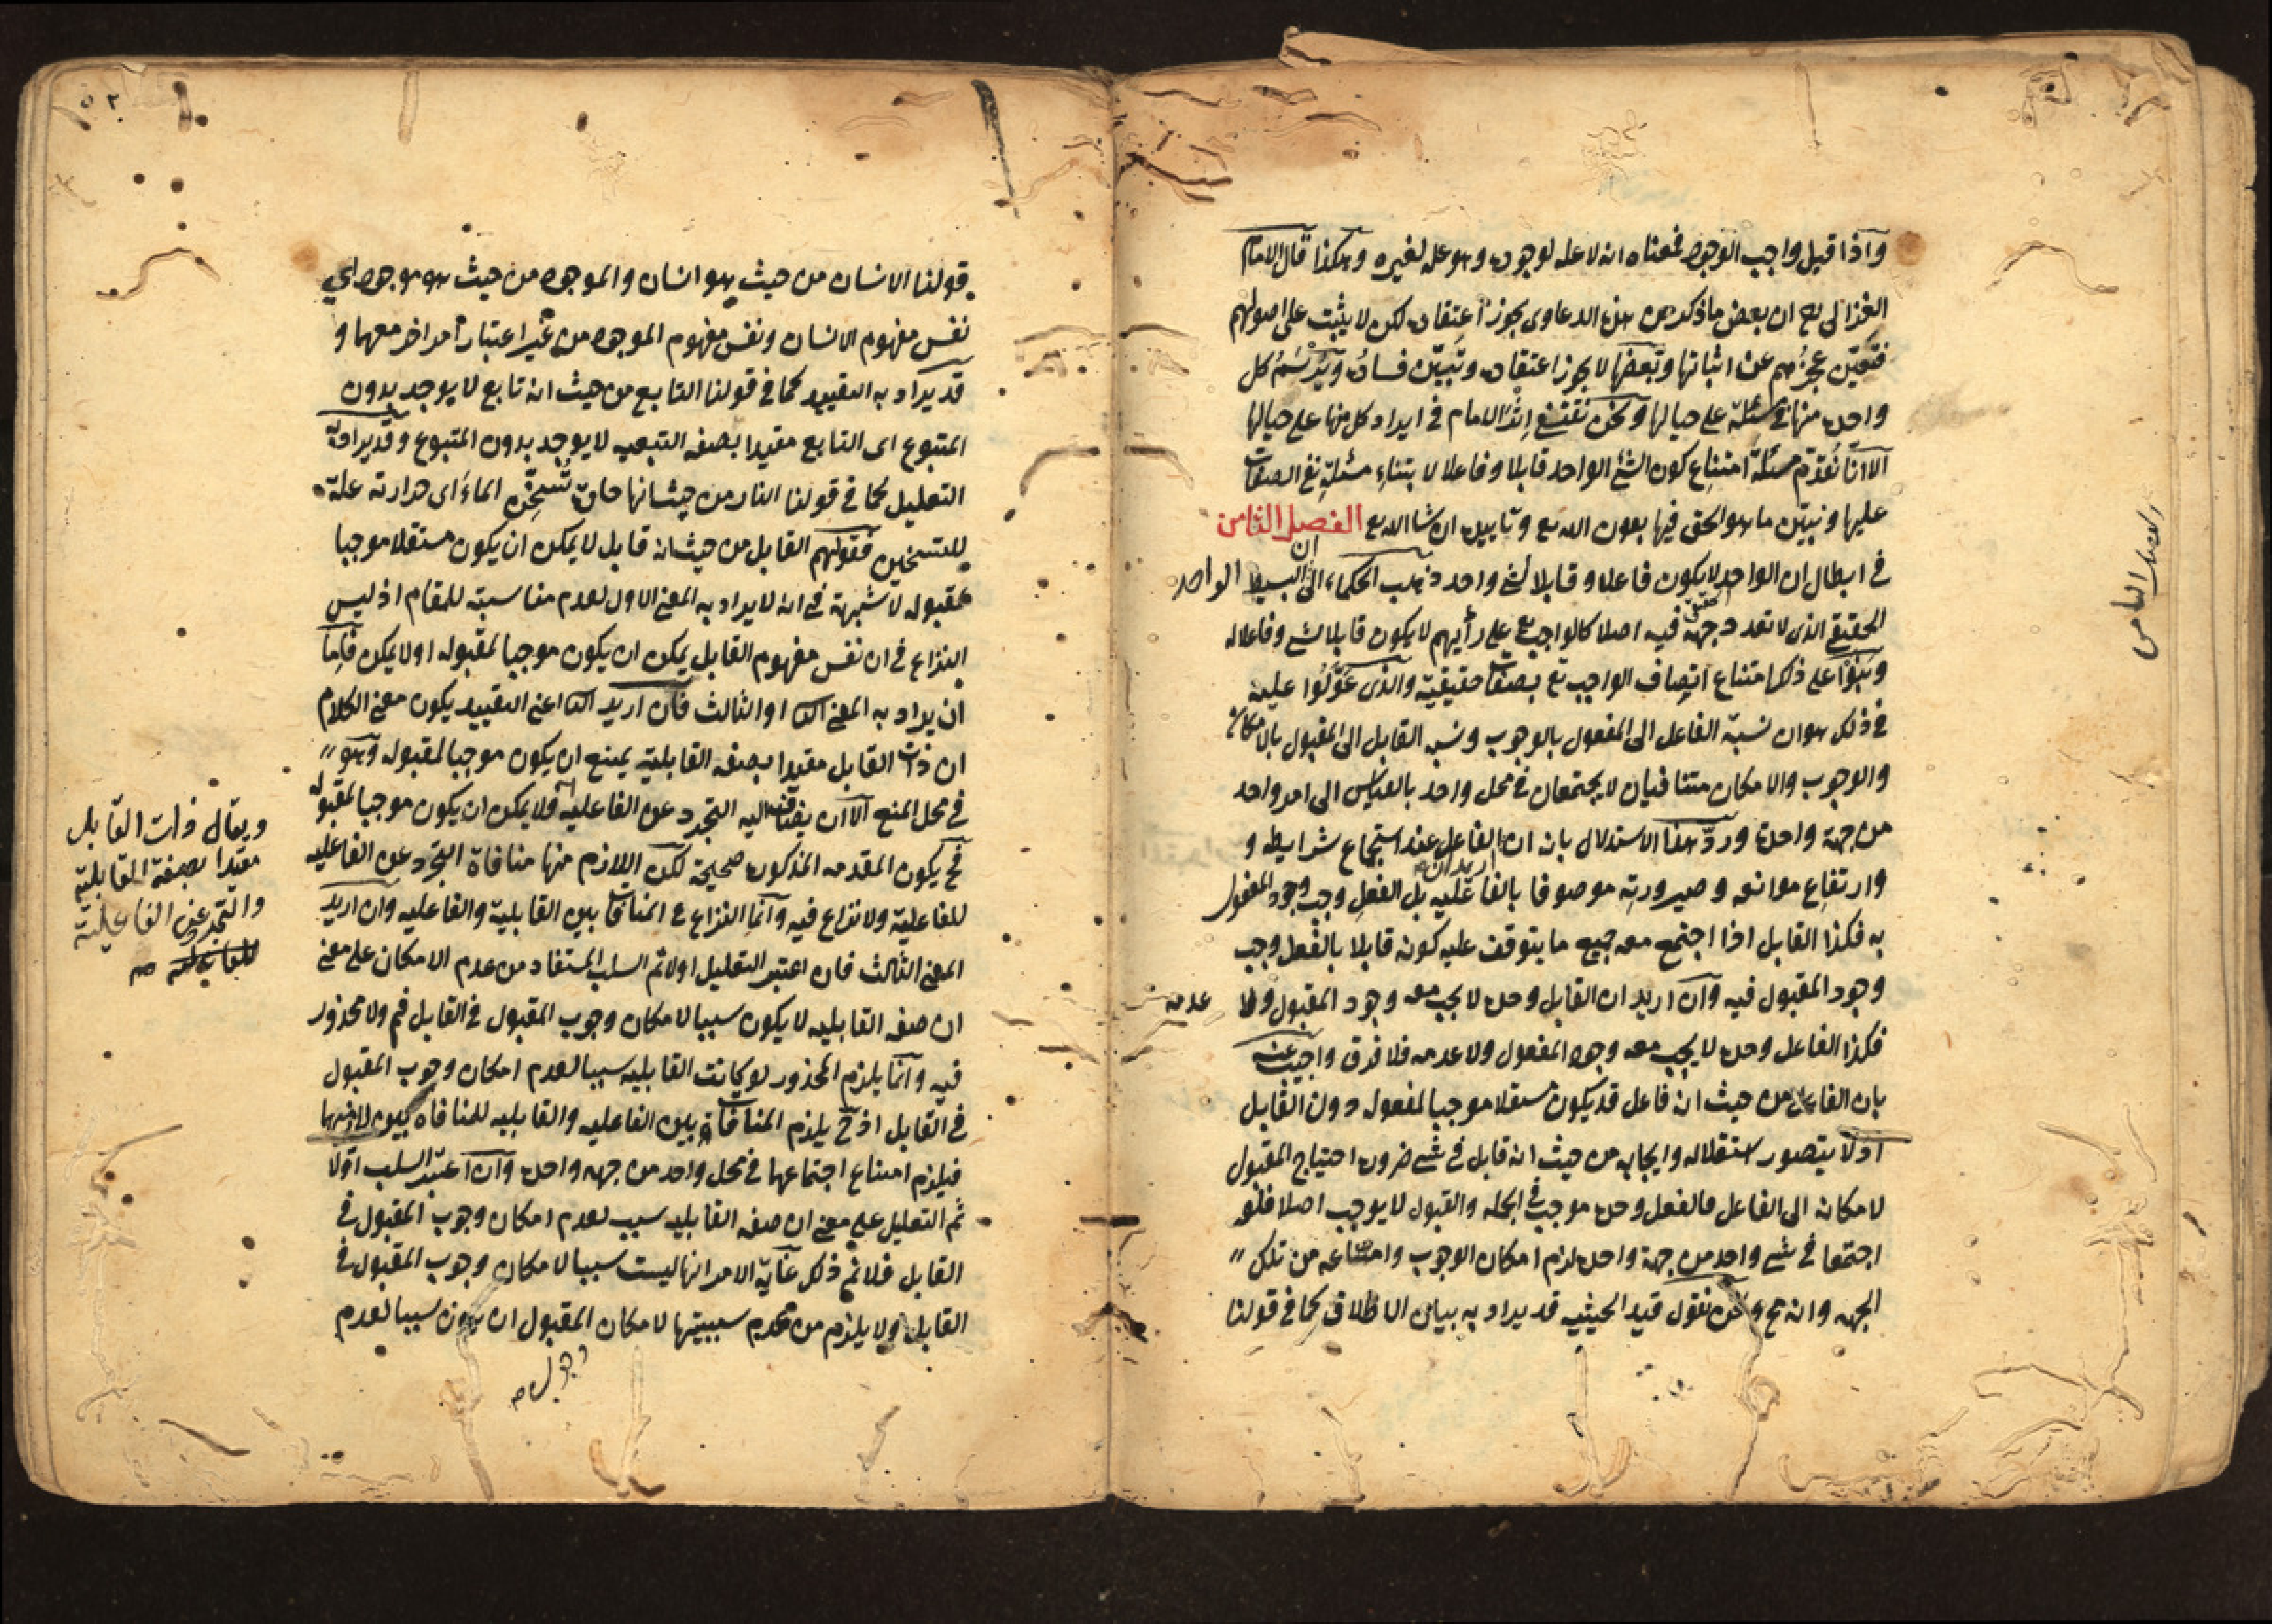 واذا قيل واجب الوجود فمعناه انه لا علة لوجوده وهو علة لغيره وهكذا قال الامام
الغزالى ثم ان بعض ما ذكر من هذه الدعاوى يجوز اعتقاده لكن لا يثبت على اصولهم
فنبين عجزهم عن اثباتها وبعضها لا يجوز اعتقاده ونبين فساده ونرسم كل
واحدة منها فى مسئلة على حيالها ونحن نقتفى اثر الامام فى ايراد كل منها على حيالها
الا انا نقدم مسئلة امتناع كون الشئ الواحد قابلا وفاعلا لابتناء مسئلة نفى الصفات
عليها ونبين ما هو الحق فيها بعون الله تع وتاييده ان شا الله تع الفصل الثامن
فى ابطال ان الواحد لا يكون فاعلا وقابلا لشئ واحد ذهب الحكماء الى ان البسيط الواحد
الحقيقى الذى لا تعدد جهة فيه اصلا كالواجب تع على رأيهم لا يكون قابلا لشئ وفاعلا له
وبنوا على ذلك امتناع اتصاف الواجب تع بصفات حقيقية والذى عولوا عليه
فى ذلك هو ان نسبة الفاعل الى المفعول بالوجوب ونسبه القابل الى المقبول بالامكان
والوجوب والامكان متنافيان لا يجتمعان فى محل واحد بالقياس الى امر واحد
من جهة واحدة ورد هذا الاستدلال بانه ان اريد ان الفاعل عند استجماع شرايطه و
وارتفاع موانعه وصيرورته موصوفا بالفاعليه بل الفعل وجب وجود المفعول
به فكذا القابل اذا اجتمع معه جميع ما يتوقف عليه كونه قابلا بالفعل وجب
وجود المقبول فيه وان اريد ان القابل وحده لا يجب معه وجود المقبول ولا عدمه
فكذا الفاعل وحده لا يجب معه وجود المفعول ولا عدمه فلا فرق واجيب عنه
بان الفاعل من حيث انه فاعل قد يكون مستقلا موجبا لمفعوله دون القابل
اذ لا يتصور استقلاله وايجابه من حيث انه قابل فى شئ ضرورة احتياج المقبول
لامكانه الى الفاعل فالفعل وحده موجب فى الجملة والقبول لا يوجب اصلا فلو
اجتمعا فى شئ واحد من جهة واحدة لزم امكان الوجوب وامتناعه من تلك
الجهه وانه مح ونحن نقول قيد الحيثيه قد يراد به بيان الاطلاق كما فى قولنا
الفصل الثامن
قولنا الانسان من حيث هو انسان والموجود من حيث هو موجود اى
نفس مفهوم الانسان ونفس مفهوم الموجود من غير اعتبار امر اخر معهما و
قد يراد به التقييد كما فى قولنا التابع من حيث انه تابع لا يوجد بدون
المتبوع اى التابع مقيدا بصفه التبعيه لا يوجد بدون المتبوع وقد يراد به
التعليل كما فى قولنا النار من حيث انها حارة تسخن الماء اى حرارته علة
للتسخين فقولهم القابل من حيث انه قابل لا يمكن ان يكون مستقلا موجبا
لمقبوله لا شبهة فى انه لا يراد به المعنى الاول لعدم مناسبته للمقام اذ ليس
النزاع فى ان نفس مفهوم القابل يمكن ان يكون موجبا لمقبوله او لا يمكن فاما
ان يراد به المعنى الثا او الثالث فان اريد الثا اعنى التقييد يكون معنى الكلام
ان ذات القابل مقيدا بصفه القابلية يمنع ان يكون موجبا لمقبوله وهو
فى محل المنع الا ان يضاف اليه التجرد عن الفاعليه ولا يمكن ان يكون موجبا لمقبوله
فح يكون المقدمه المذكورة صحيحة لكن اللازم منها منافاة التجرد عن الفاعليه
للفاعلية ولا نزاع فيه وانما النزاع فى المنافاة بين القابلية والفاعليه وان اريد
المعنى الثالث فان اعتبر التعليل اولا ثم السلب المستفاد من عدم الامكان على معنى
ان صفه القابليه لا يكون سببا لامكان وجوب المقبول فى القابل فم ولا محذور
فيه وانما يلزم المحذور لو كانت القابليه سببا لعدم امكان وجوب المقبول
فى القابل اذ ح يلزم المنافاة بين الفاعليه والقابليه للمنافاة بين لازميهما
فيلزم امتناع اجتماعهما فى محل واحد من جهه واحدة وان اعتبر السلب اولا
ثم التعليل على معنى ان صفه القابليه سبب لعدم امكان وجوب المقبول فى
القابل فلا نم ذلك غاية الامر انها ليست سببا لامكان وجوب المقبول فى
القابل ولا يلزم من عدم سببيتها لامكان المقبول ان يكون سببا لعدم
ويقال ذات القابل
مقيدا بصفة القابلية
والتجرد عن الفاعلية